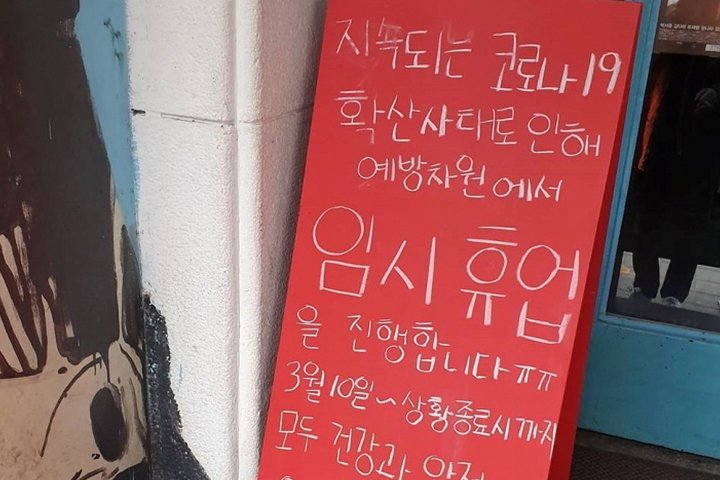 지속되는 코로나19
확산사태로 인해
예방차원에서
임시 휴업
을 진행합니다ㅠㅠ
3월 10일~상황종료시까지
모두 건강과 안전